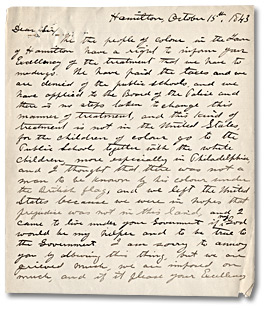 Hamilton, October 15th, 1843
Dear Sir,
We the people of colour in the Town
of Hamilton have a right to inform your
Excellency of the treatment that we have to
undergo. We have paid the taxes and we
are denied of the public schools, and we
have applied to the Board of the Police and
there is no steps taken to change this
manner of treatment, and this kind of
treatment is not in the United States, for
the children of colour go to the
Public Schools together with the white
children, more especially in Philadelphia,
and I thought that there was not a
man to be known by his colour under
the British flag, and we left the United
States because we were in hopes that
prejudice was not in this land, and I
came to live under your Government if my God
would be my helper and to be true to
the Government. I am sorry to annoy
you by allowing this thing, but we are
grieved much, we are imposed on
much, and if it please your Excellency